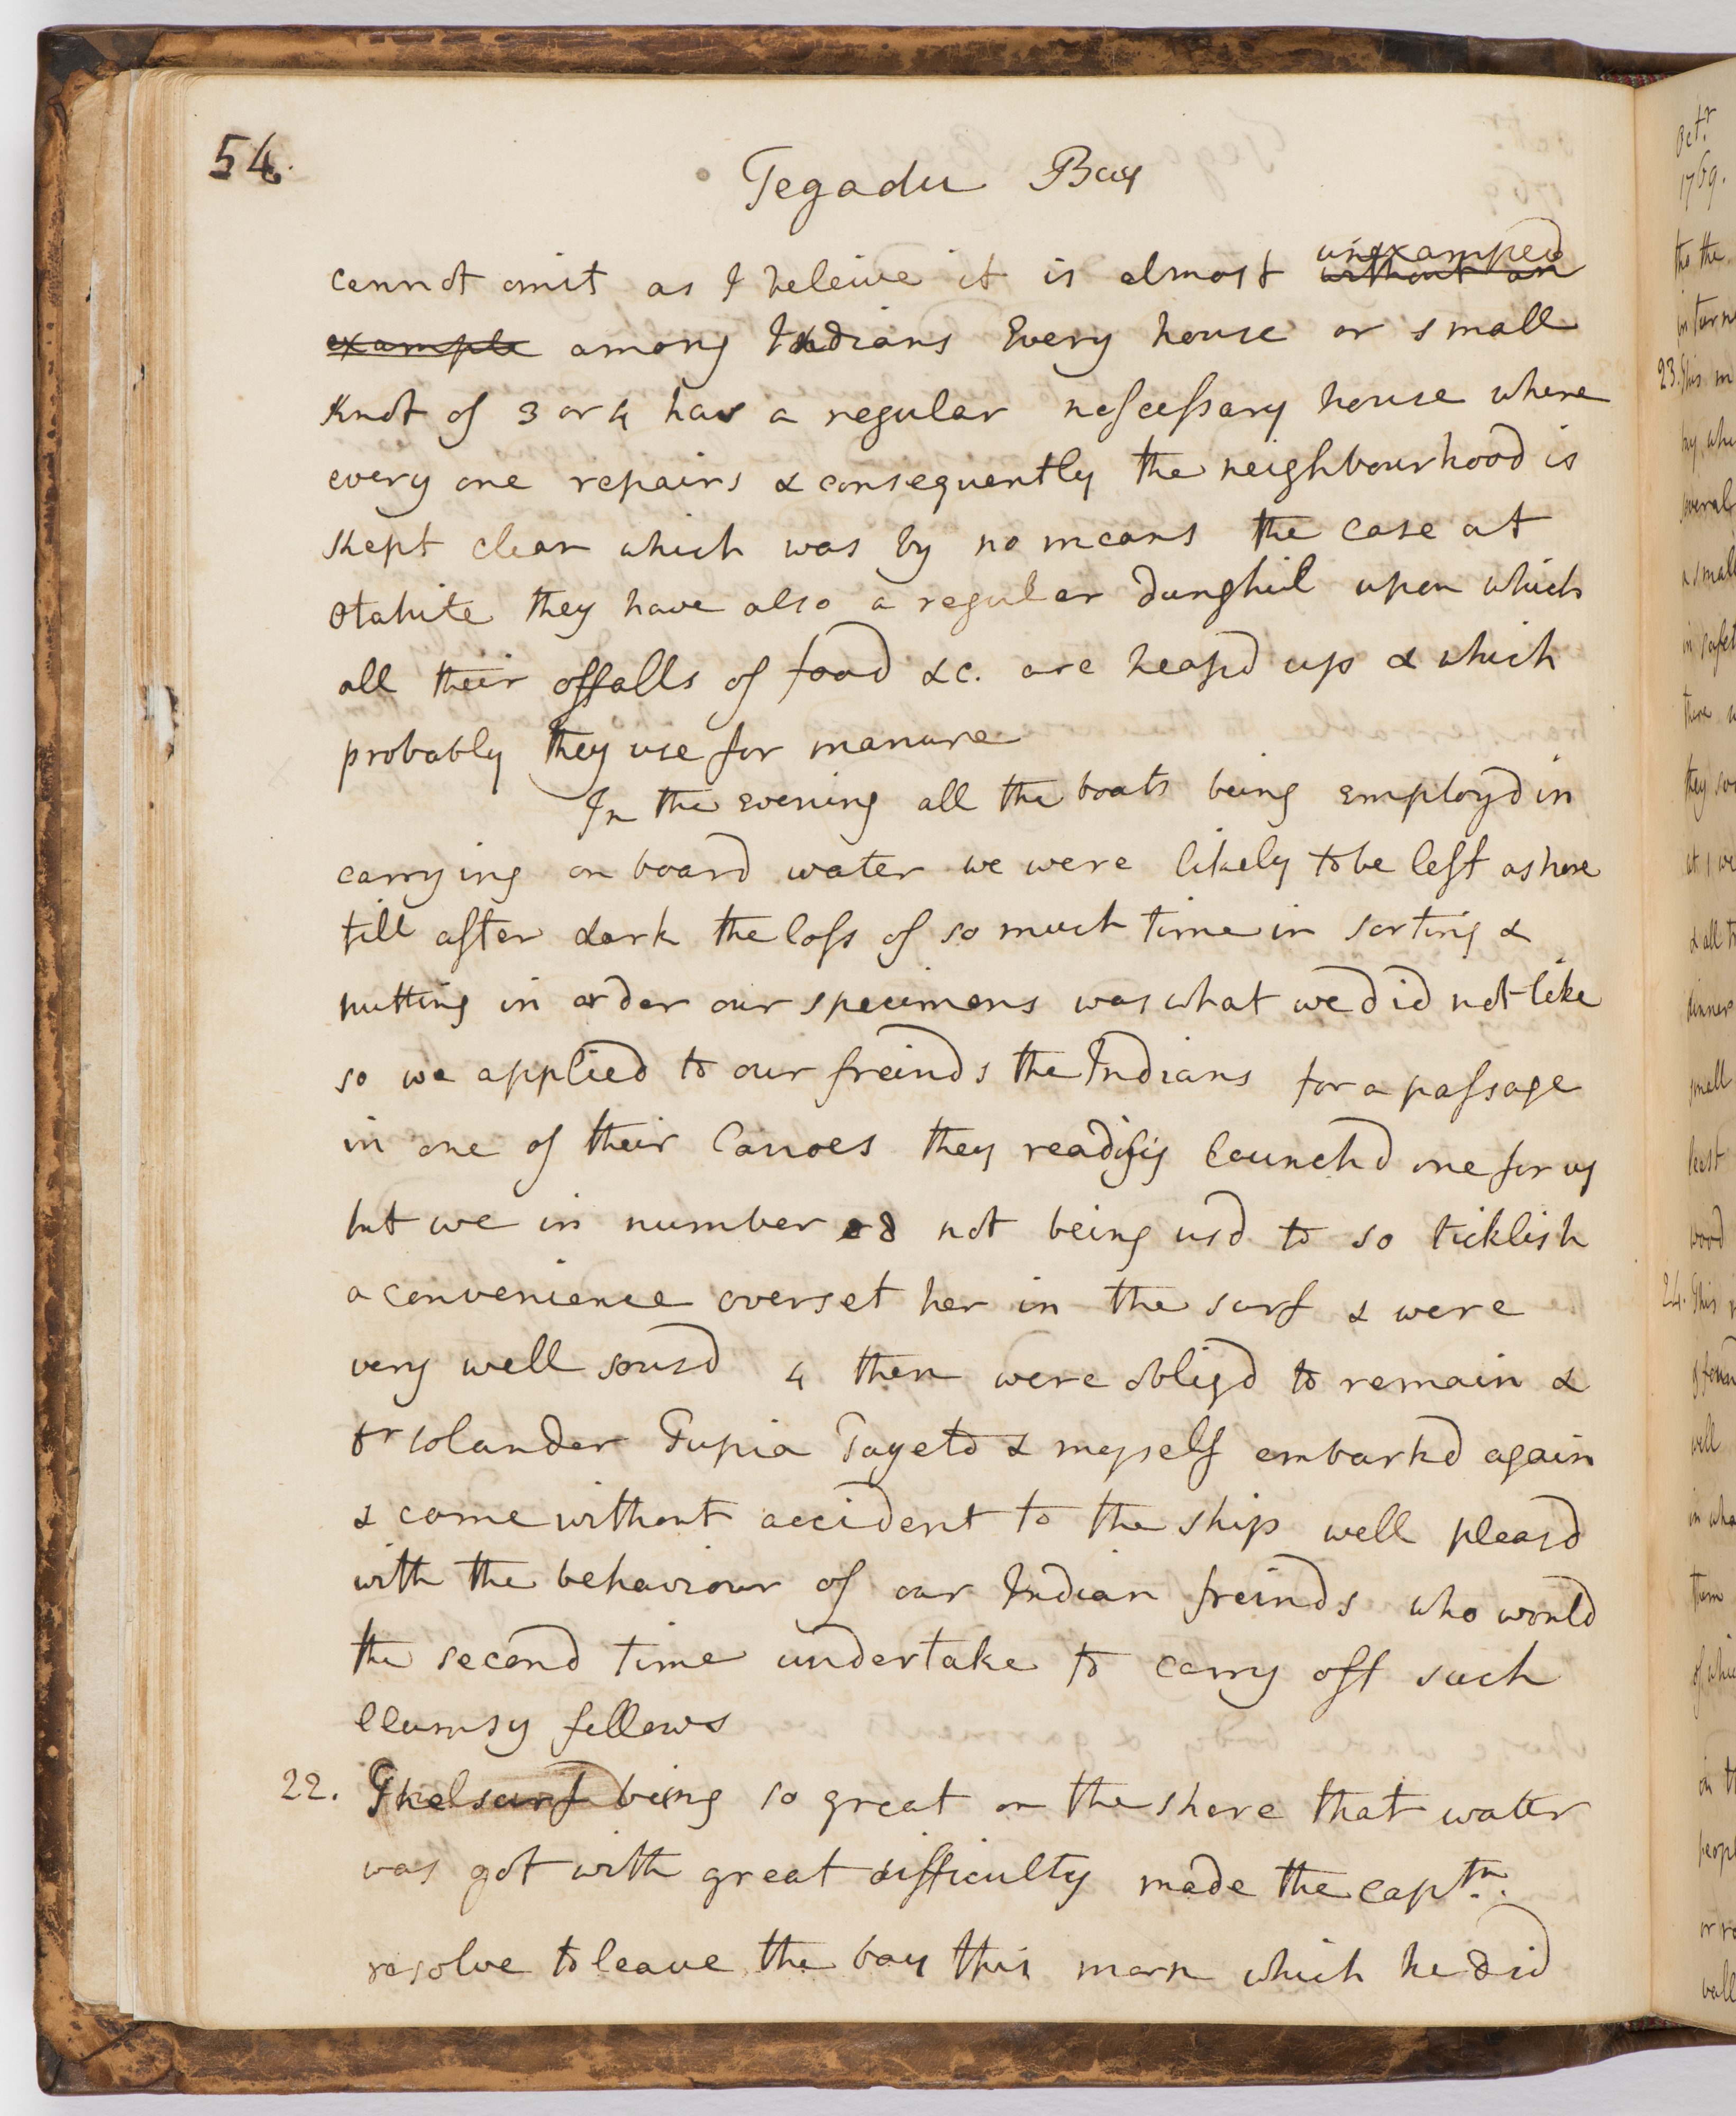 54.
Tegadu Bay
cannot omit as I beleive it is almost unexampled
without an
example among Indians Every house or small
knot of 3 or 4 has a regular nescessary house where
every one repairs & consequently the neighbourhood is
kept clear which was by no means the case at
Otahite they have also a regular dunghil upon which
all their offalls of food &c. are heapd up & which
probably they use for manure
In the Evening all the boats being Employd in
carrying on board water we were likely to be left ashore
till after dark the loss of so much time in sorting &
putting in order our specimens was what we did not like
so we applied to our freinds the Indians for a passage
in one of their Canoes they readily launchd one for us
but we in number 8 not being usd to so ticklish
a convenience overset her in the surf & were
very well sousd 4 then were obligd to remain &
Dr Solander Tupia Tayeto & myself embarkd again
& came without accident to the ship well pleasd
with the behaviour of our Indian freinds who would
the second time undertake to carry off such
Clumsy fellows
22. The surf being so great on the shore that water
was got with great difficulty made the Captn.
resolve to leave the bay this morn which he did
Octr.
1769.
tho the
in turn
23. This m
by whi
several
a small
in safet
there w
they so
at 1 we
& all t
dinner
small
least
wood
24. This
well
in wha
them
of whic
on t
peopl
or ro